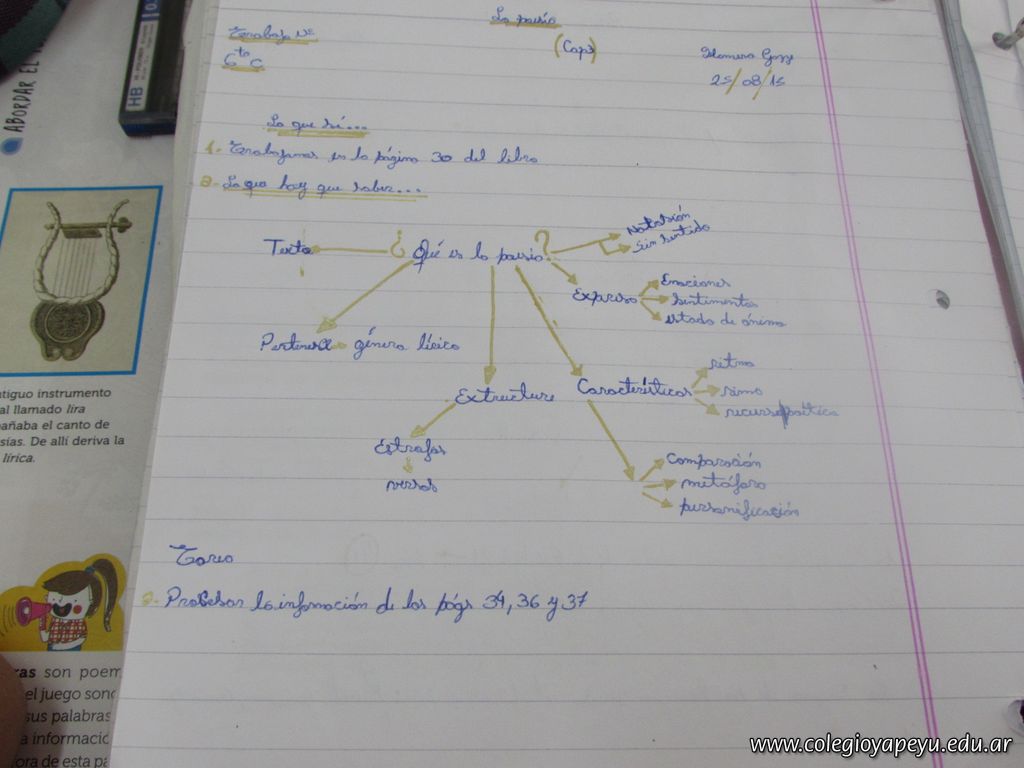 La poesía
Trabajo Nº
(Cap3)
6to C
25/08/15
Lo que sé...
1. Trabajamos en la página 30 del libro
2. Lo que hay que saber...
Notación
Sin sentido
Texto ¿Qué es la poesía?
Emociones
Expresa sentimientos
estado de ánimo
Pertenece género lírico
ritmo
Extructura Características rima
recurso poético
Estrofas
comparación
versos metáfora
personificación
Tarea
2. Procesar la información de las págs 34, 36 y 37
ABORDAR EL
HB
tiguo instrumento
al llamado lira
añaba el canto de
sías. De allí deriva la
lírica.
ras son poem
el juego sono
sus palabras
a informació
ora de esta pa
www.colegioyapeyu.edu.ar